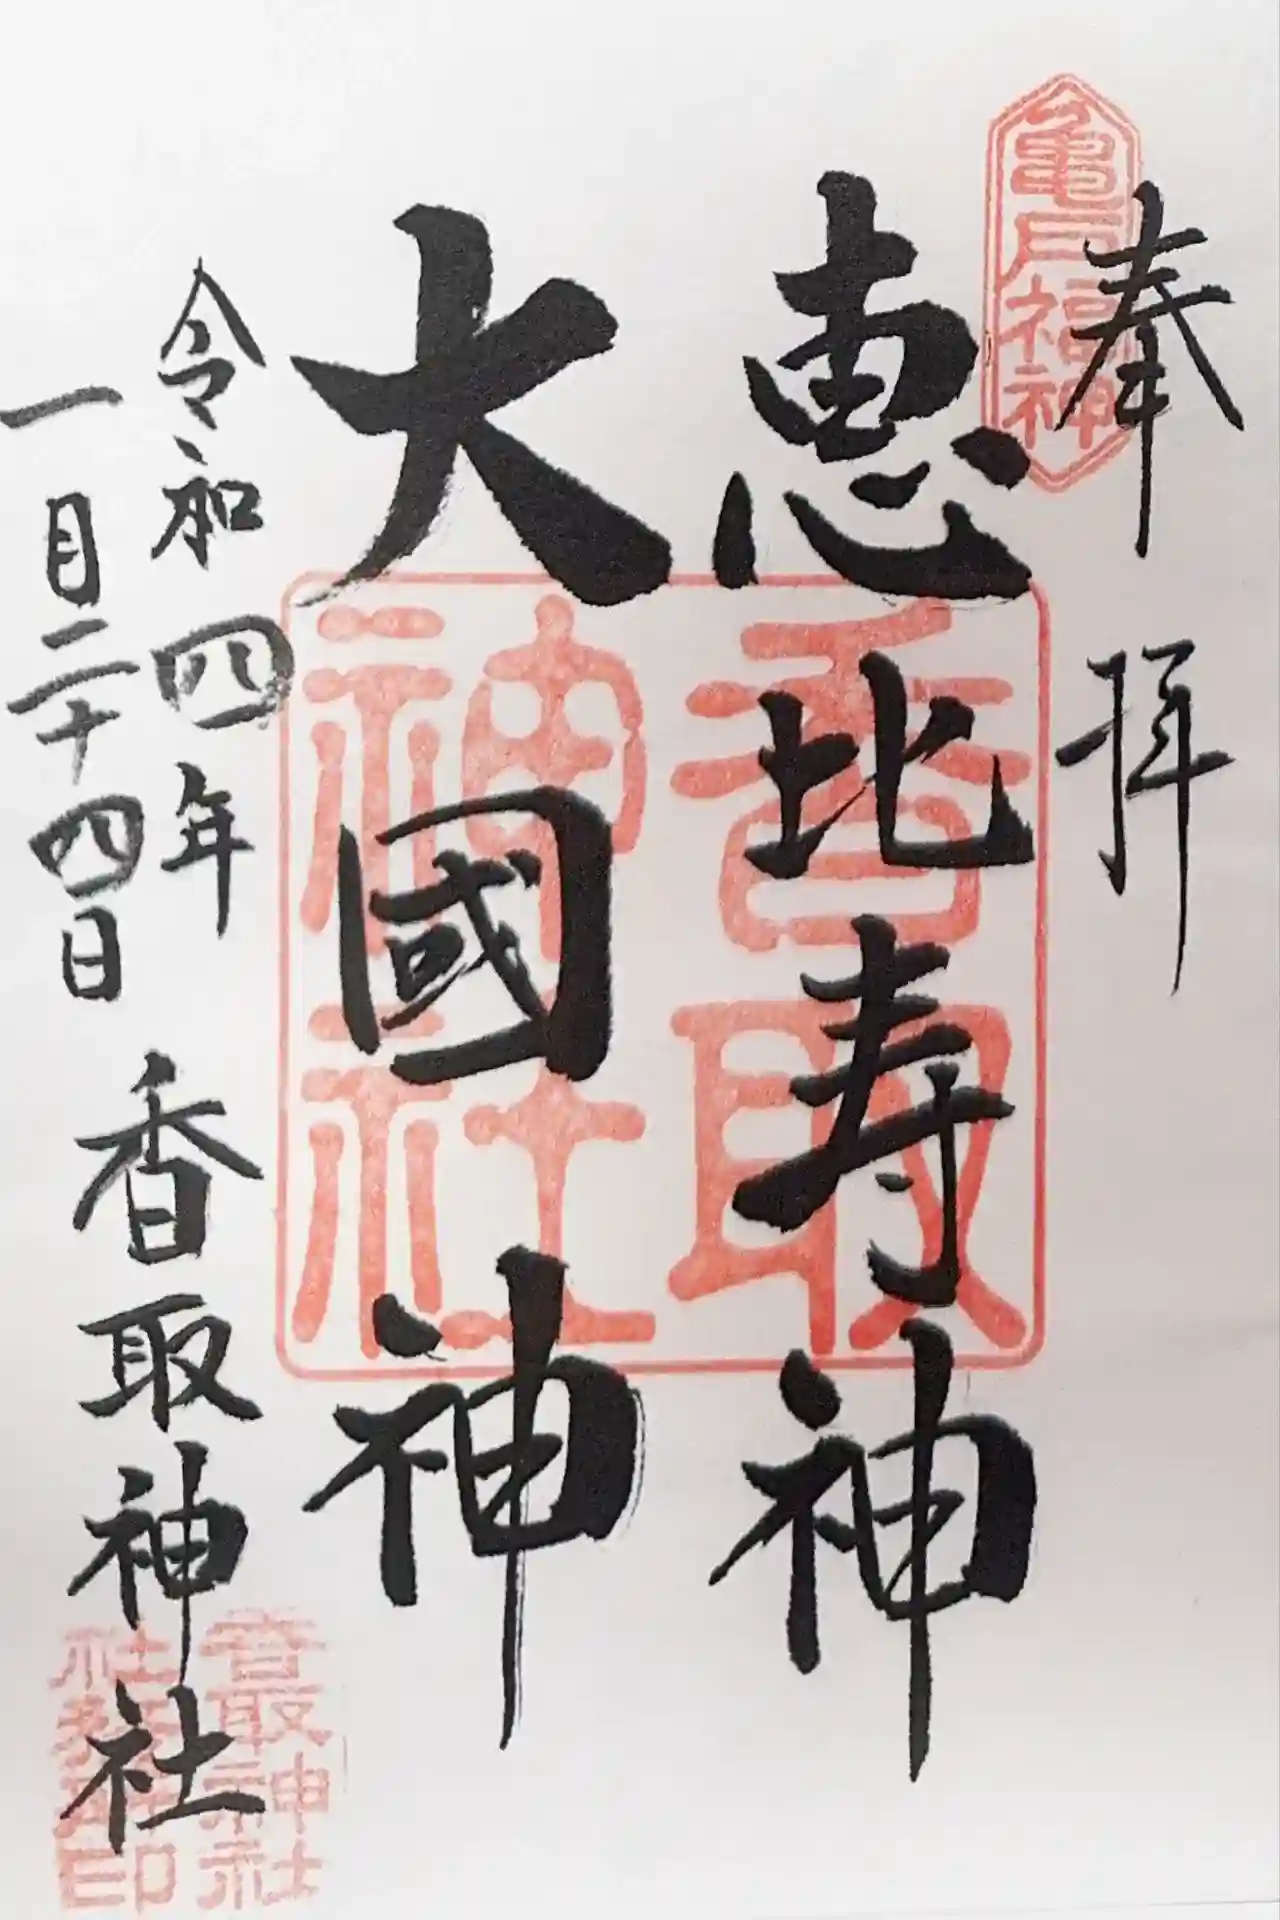 奉拝
亀戸福神
恵比寿神
大國神
香取神社
令和四年
一月二十四日
香取神社
香取神社
社務所印